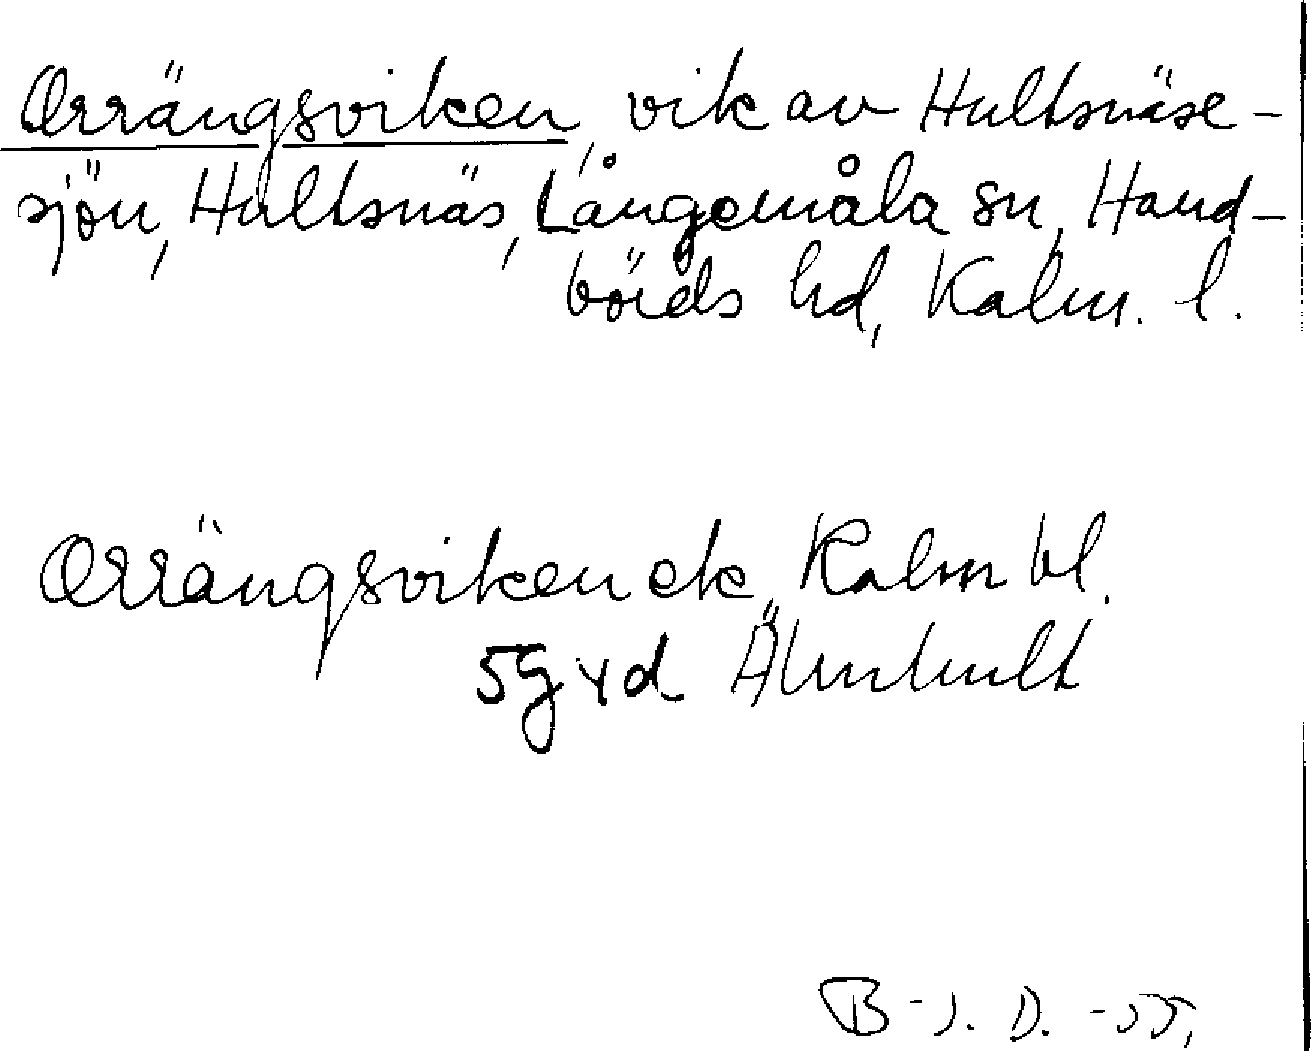 Orrängsviken, vik av Hultsnäse-
sjön, Hultsnäs, Långemåla sn, Hand-
börds hd, Kalm. l.
Orrängsviken ek, Kalm bl.
5g yd Älmhult
B-J. D. -55,